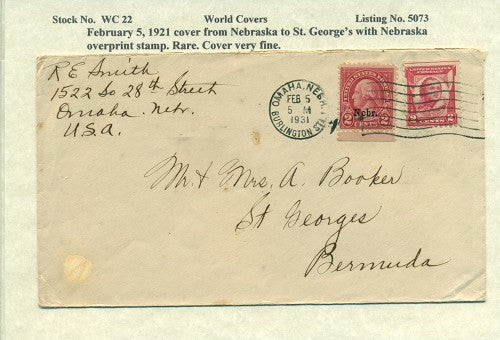 Stock No. WC 22 World Covers Listing No. 5073
February 5, 1921 cover from Nebraska to St. George's with Nebraska
overprint stamp. Rare. Cover very fine.
R E Smith
1522 So 28th Street
Omaha. Nebr.
U.S.A.
OMAHA, NEBR.
FEB 5
5 M
1931
BURLINGTON STA.
Nebr.
2 CENTS 2
2 CENTS 2
Mr & Mrs. A. Booker
St Georges
Bermuda